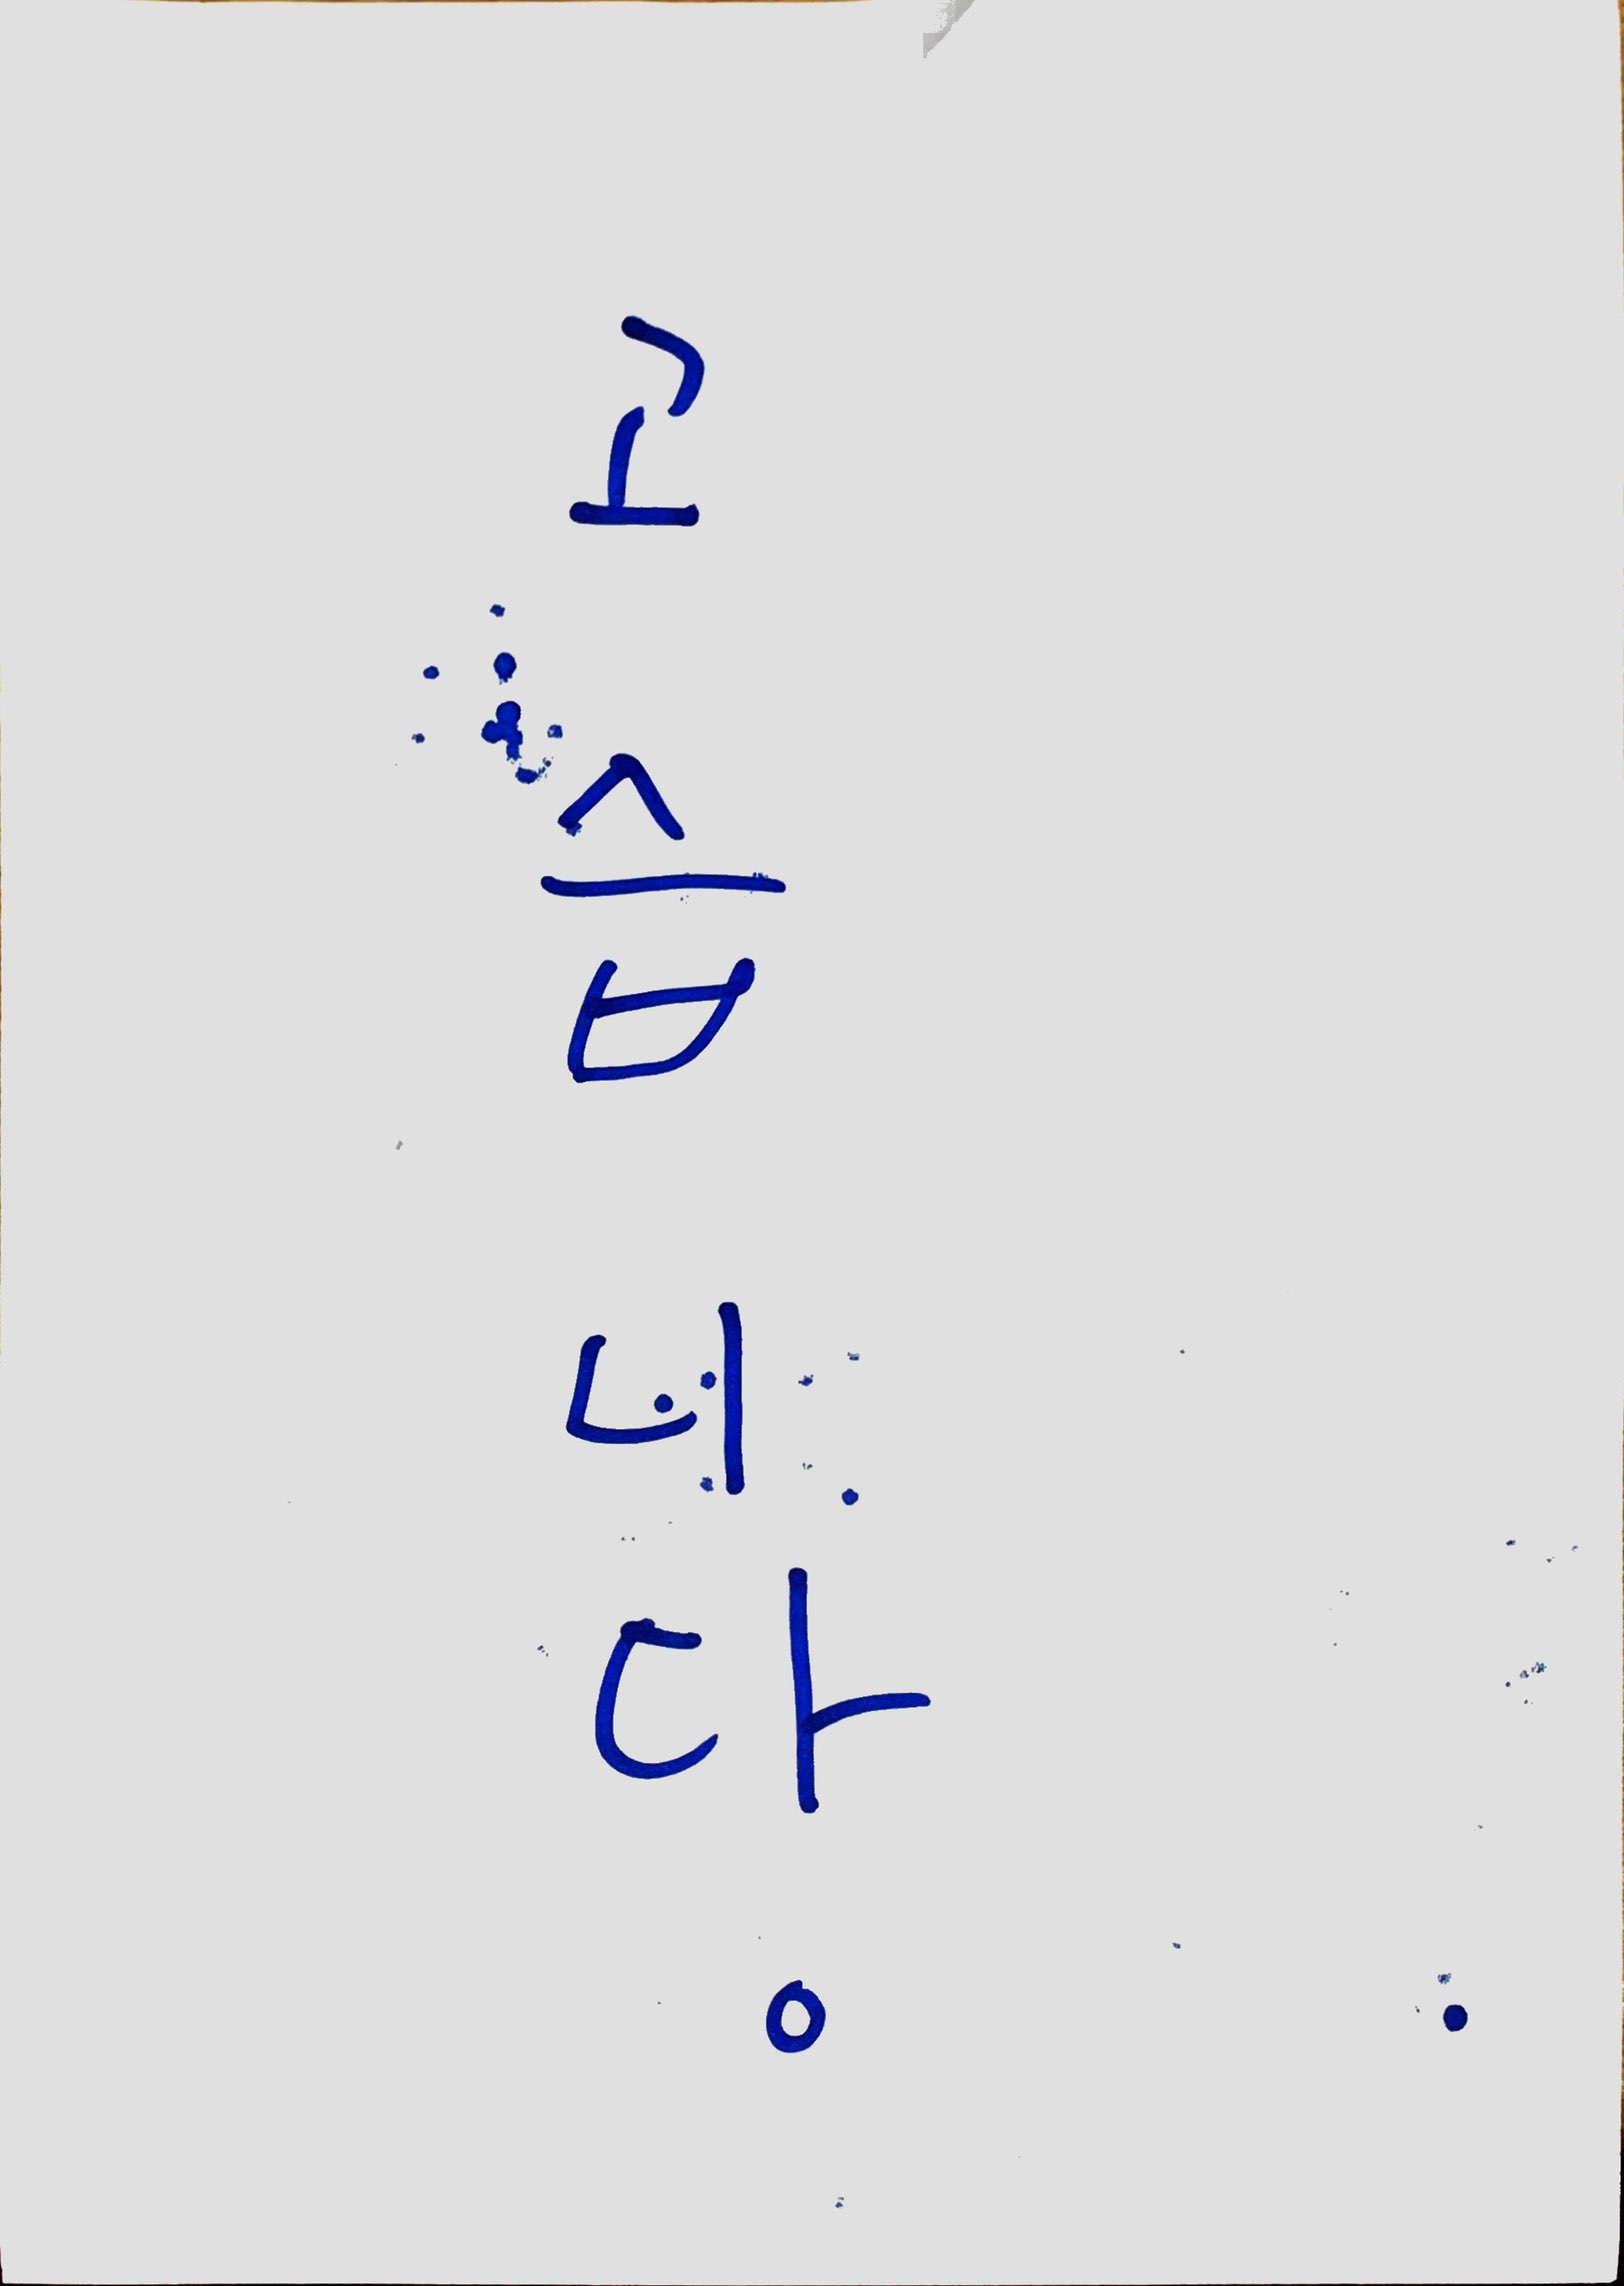 고습니다。